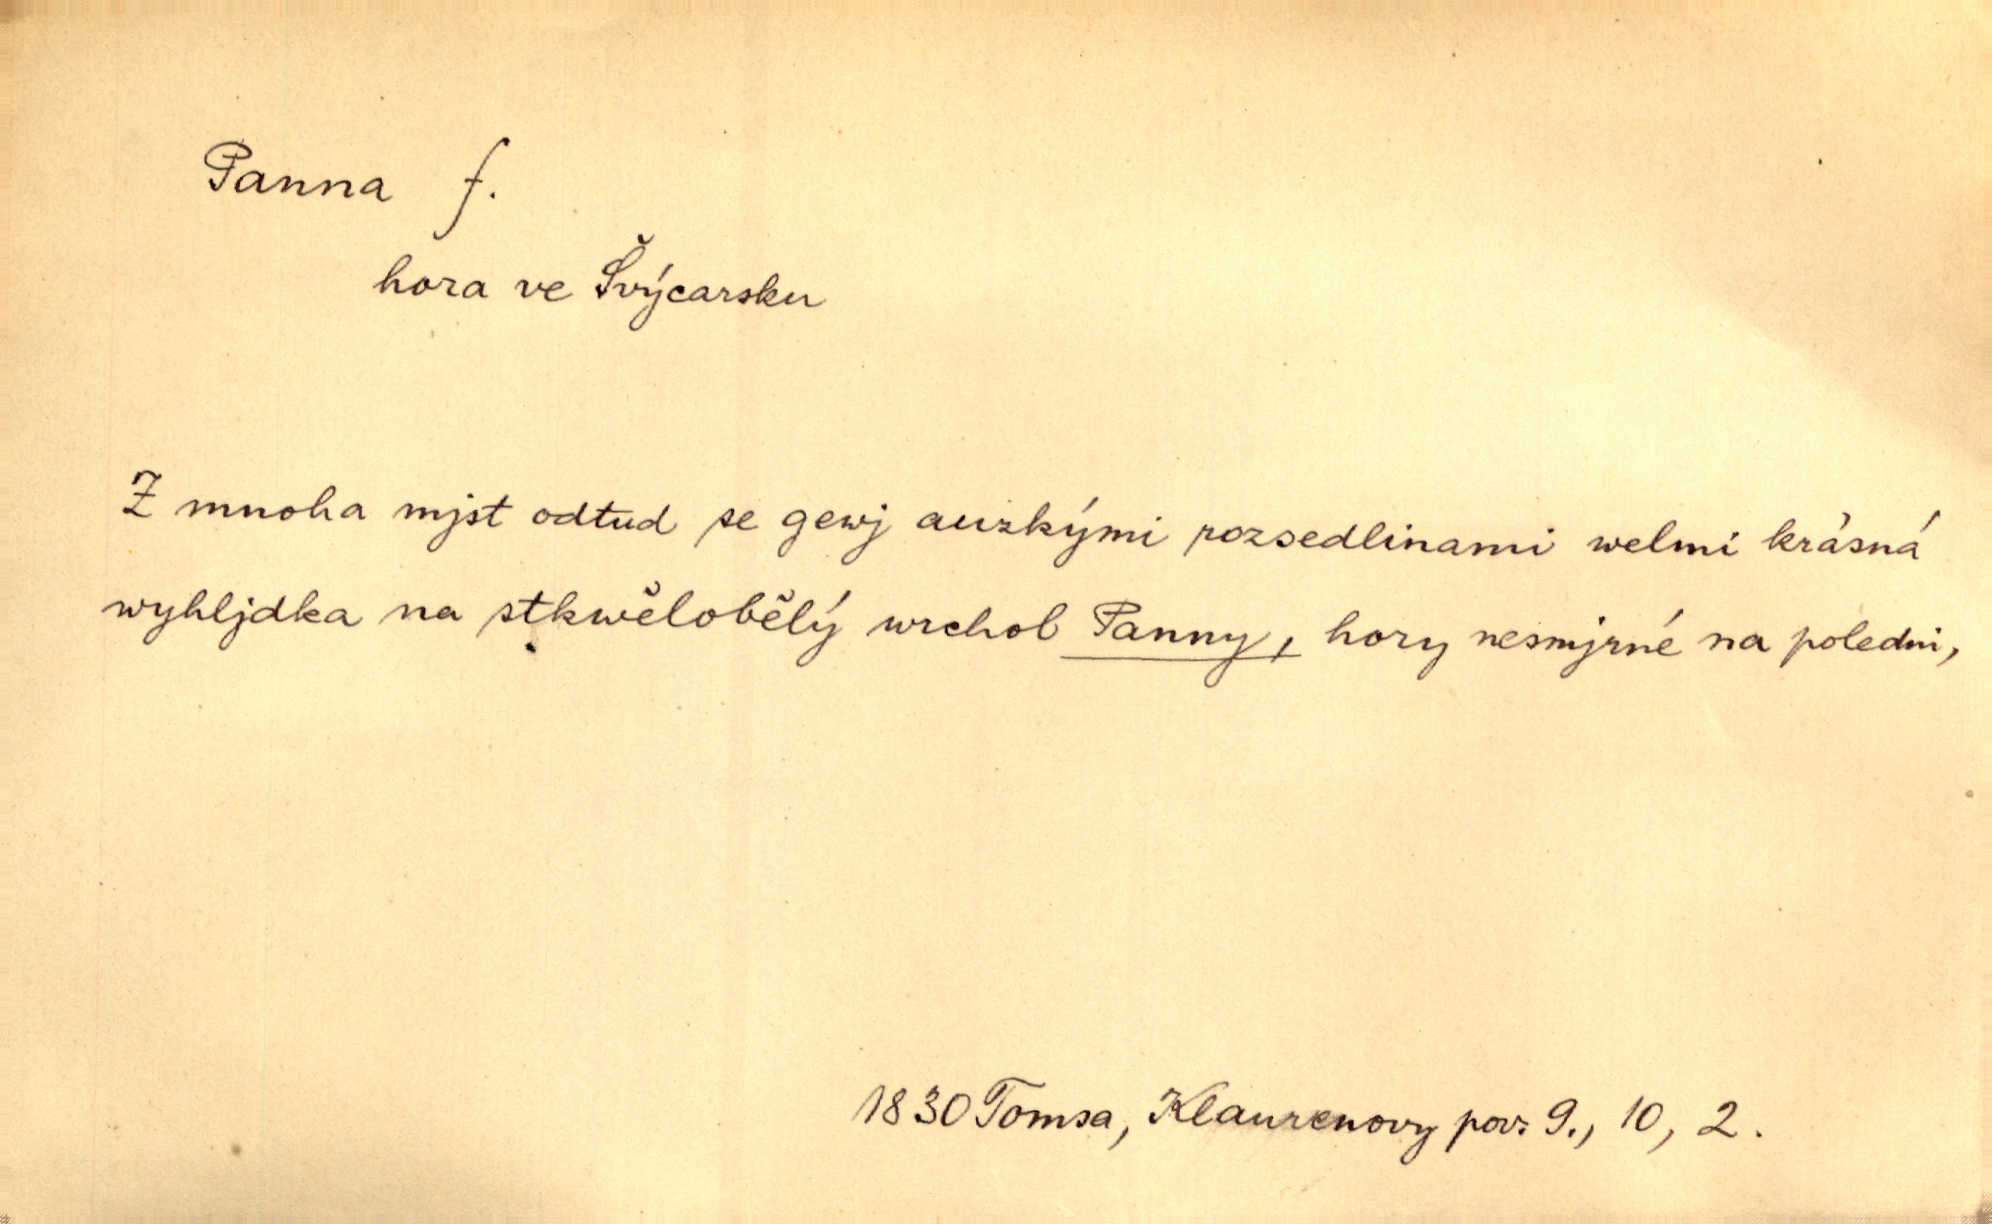 Panna f.
hora ve Švýcarsku
Z mnoha mjst odtud se gewj auzkými rozsedlinami welmi krásná
wyhljdka na stkwělobělý wrchol Panny, hory nesmjrné na poledni,
1830 Tomsa, Klaurenovy pov. 9., 10, 2.